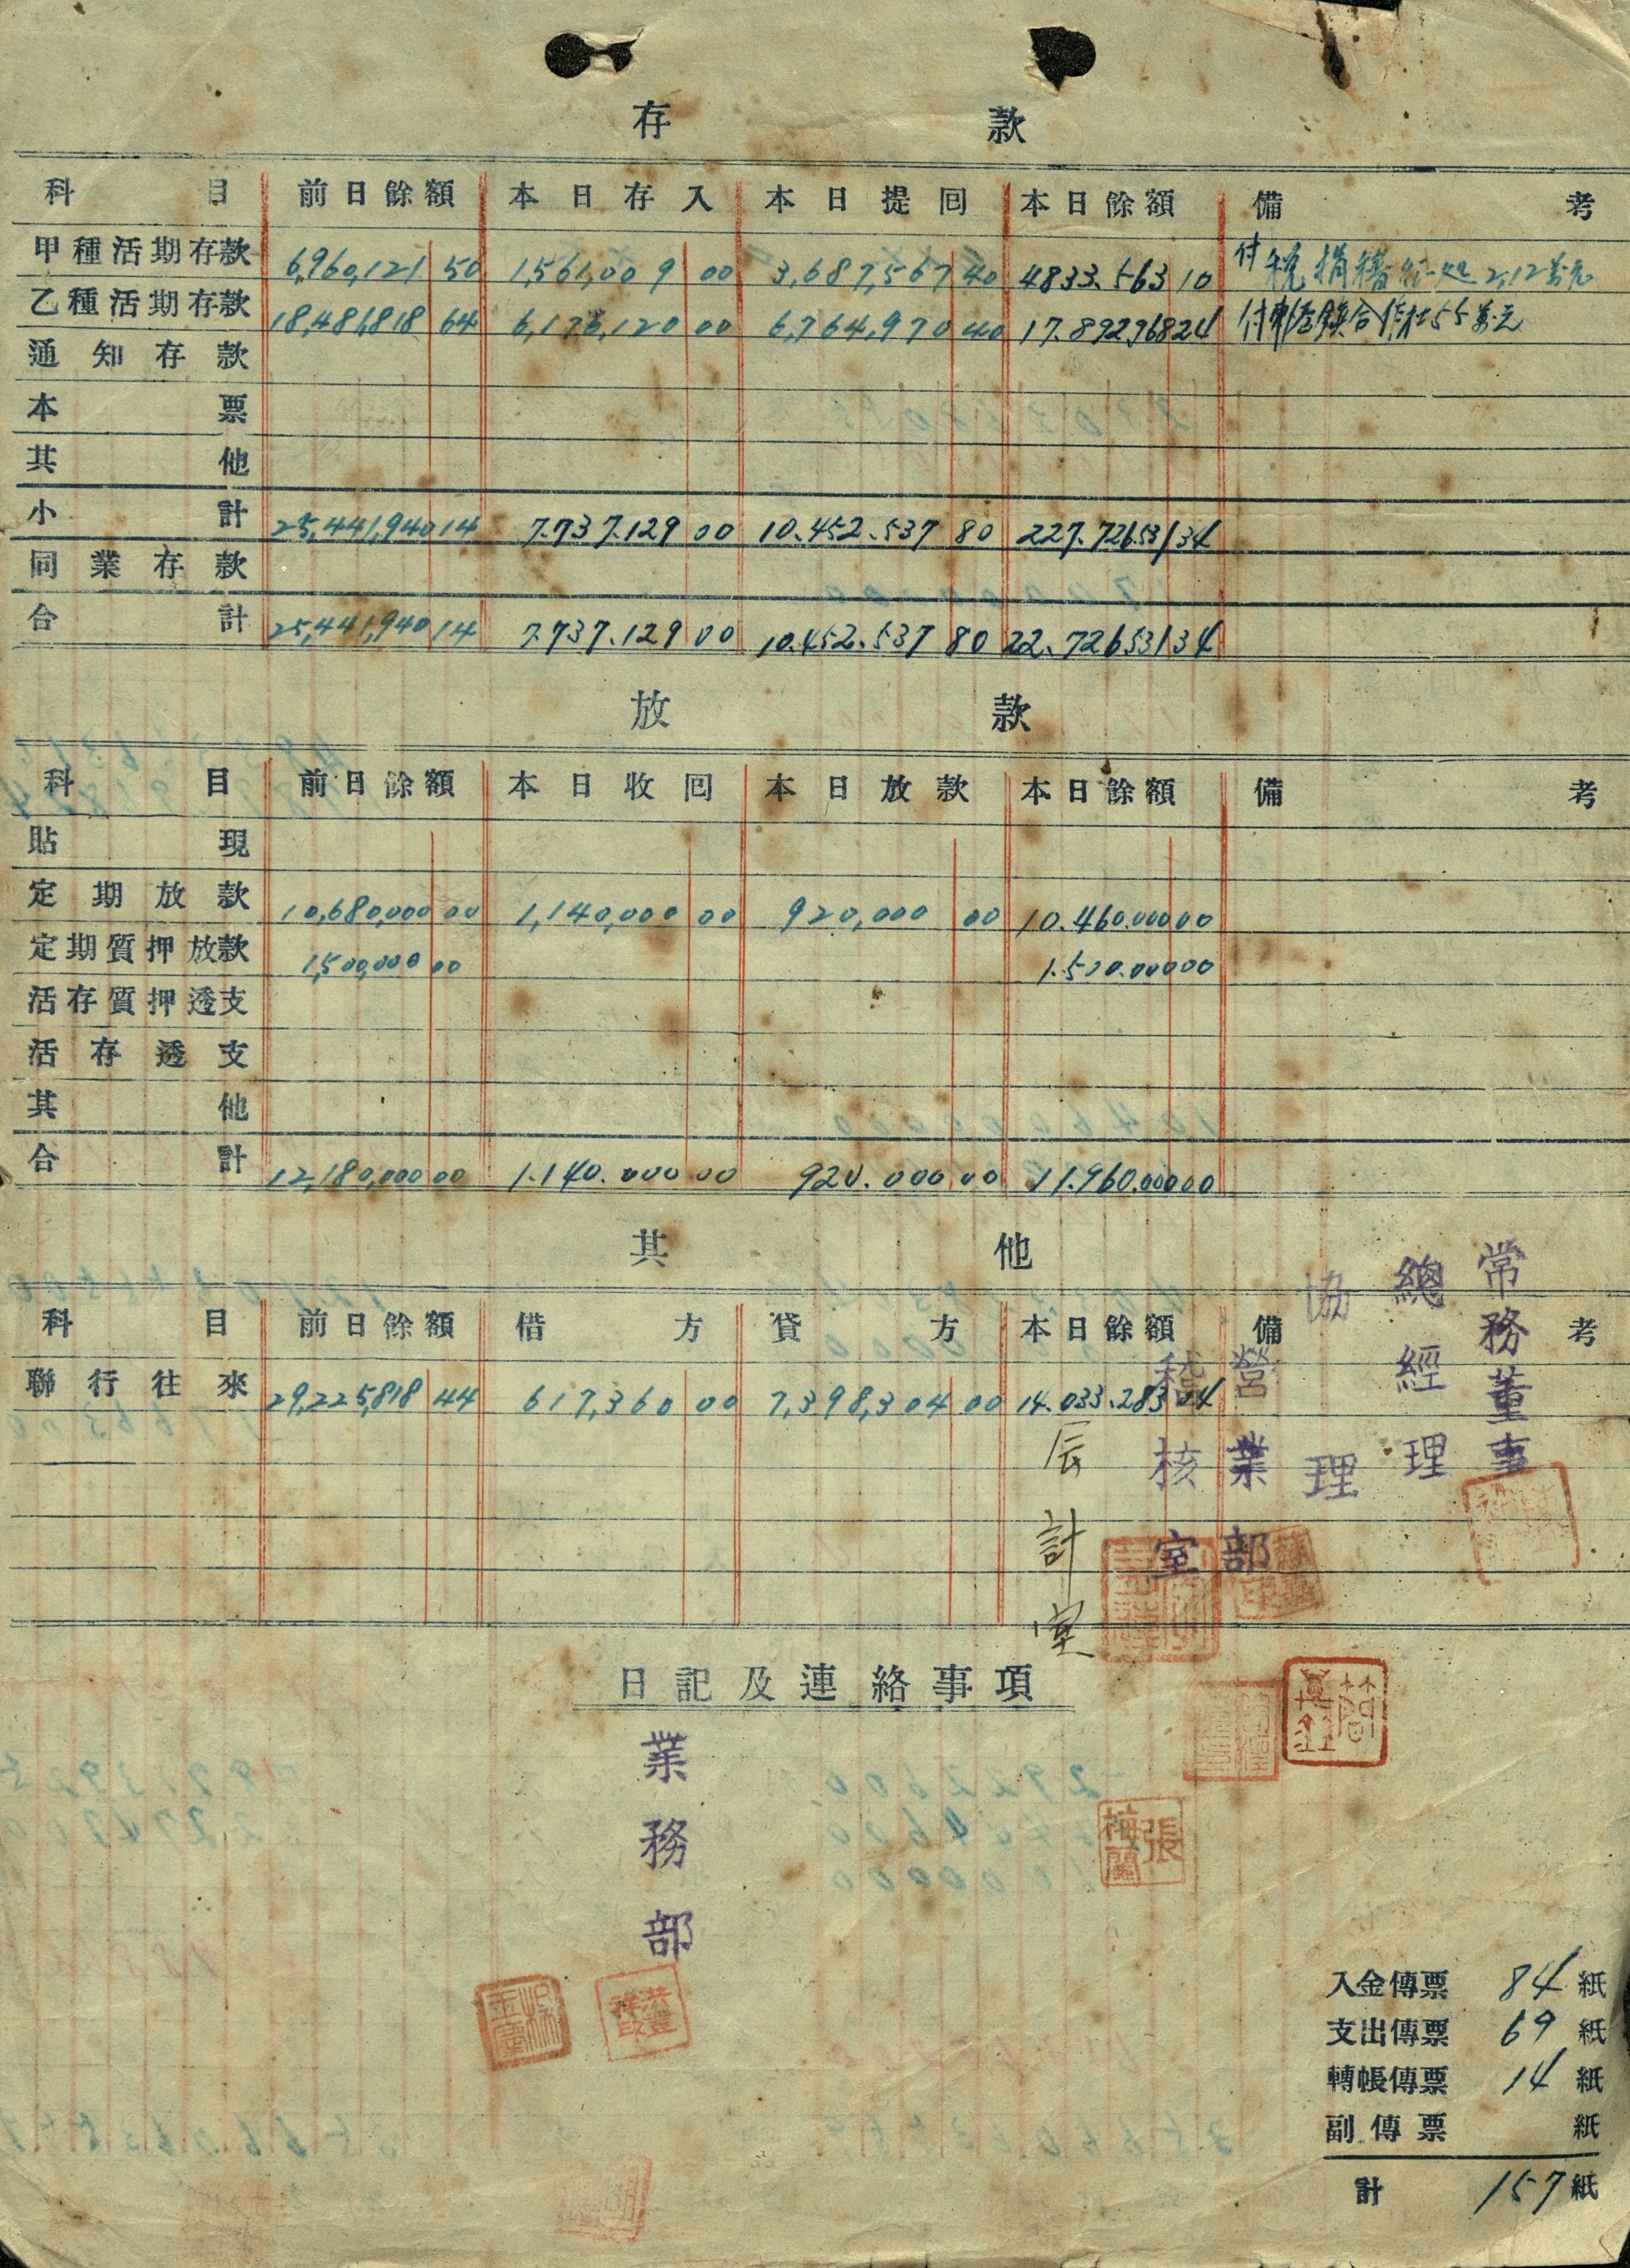 存款
科目 前日餘額 本日存入 本日提囘 本日餘額 備考
甲種活期存款 6,960,121 50 1,561,009 00 3,687,567 40 4833.563 10 付稅捐稽征处2,12萬元
乙種活期存款 18,481,818 64 6,176,120 00 6,764,970 40 17.892968 24 合作社55萬元
通知存款
本票
其他
小計 25,441,940 14 7.737.129 00 10.452.537 80 227.726531 34
同業存款
合計 25,441,940 14 7.737.129 00 10.452.537 80 22.726531 34
放款
科目 前日餘額 本日收囘 本日放款 本日餘額 備考
貼現
定期放款 10,680,000 00 1,140,000 00 920,000 00 10.460.000 00
定期質押放款 1,500,000 00 1.500.000 00
活存質押透支
活存透支
其他
合計 12,180,000 00 1.140.000 00 920.000 00 11.960.000 00
其他
科目 前日餘額 借方 貸方 本日餘額 備考
聯行往來 29,225,818 44 617,360 00 7,398,304 00 14.033.283 04
常務董事
總經理
協理
營業部
稽核室
計室
日記及連絡事項
業務部
張梅蘭
洪豐祥印
入金傳票 84 紙
支出傳票 69 紙
轉帳傳票 14 紙
副傳票 紙
計 157 紙